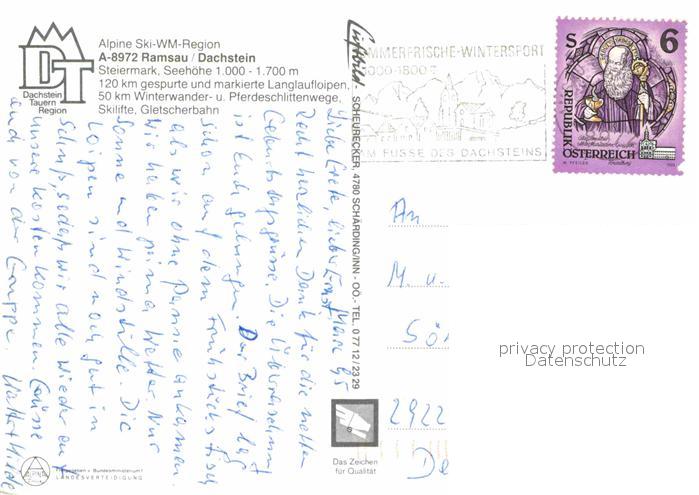 Alpine Ski-WM-Region
A-8972 Ramsau / Dachstein
Steiermark, Seehöhe 1.000 - 1.700 m
120 km gespurte und markierte Langlaufloipen,
50 km Winterwander- u. Pferdeschlittenwege,
Skilifte, Gletscherbahn
DT
Dachstein
Tauern
Region
März 95
Liebe Grete, lieber Ernst,
Recht herzlichen Dank für die netten
Geburtstagsgrüsse. Die Überraschung
ist Euch gelungen. Der Brief lag
schon auf dem Frühstückstisch
als wir ohne Panne ankamen.
Wir haben prima Wetter. Nur
Sonne und Windstille. Die
Loipen sind noch gut in
Schuss, sodass wir alle wieder auf
unsere Kosten kommen. Grüsse
auch von der Gruppe.
Luftbild SCHEURECKER, 4780 SCHÄRDING/INN - OÖ. - TEL. 0 77 12 / 23 29
SOMMERFRISCHE-WINTERSPORT
1000-1800
AM FUSSE DES DACHSTEINS
S 6
REPUBLIK
ÖSTERREICH
An
M. u.
2922
privacy protection
Datenschutz
Das Zeichen
für Qualität
ALPINE
Freigegeben v. Bundesministerium f.
LANDESVERTEIDIGUNG